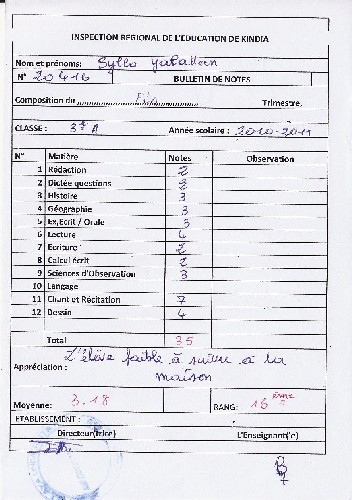 INSPECTION REGIONAL DE L'EDUCATION DE KINDIA
Nom et prénoms: Sylla
N° 20416 BULLETIN DE NOTES
Composition du Trimestre,
CLASSE : 3è A Année scolaire : 2010-2011
N° Matière Notes Observation
1 Rédaction 2
2 Dictée questions 2
3 Histoire 3
4 Géographie 3
5 Ex,Ecrit / Orale 3
6 Lecture 4
7 Ecriture 2
8 Calcul écrit 2
9 Sciences d'Observation 3
10 Langage
11 Chant et Récitation 7
12 Dessin 4
Total 35
Appréciation : L'élève faible à suivre à la
maison
Moyenne: 3.18 RANG: 16ème
ETABLISSEMENT :
Directeur(trice) L'Enseignant('e)